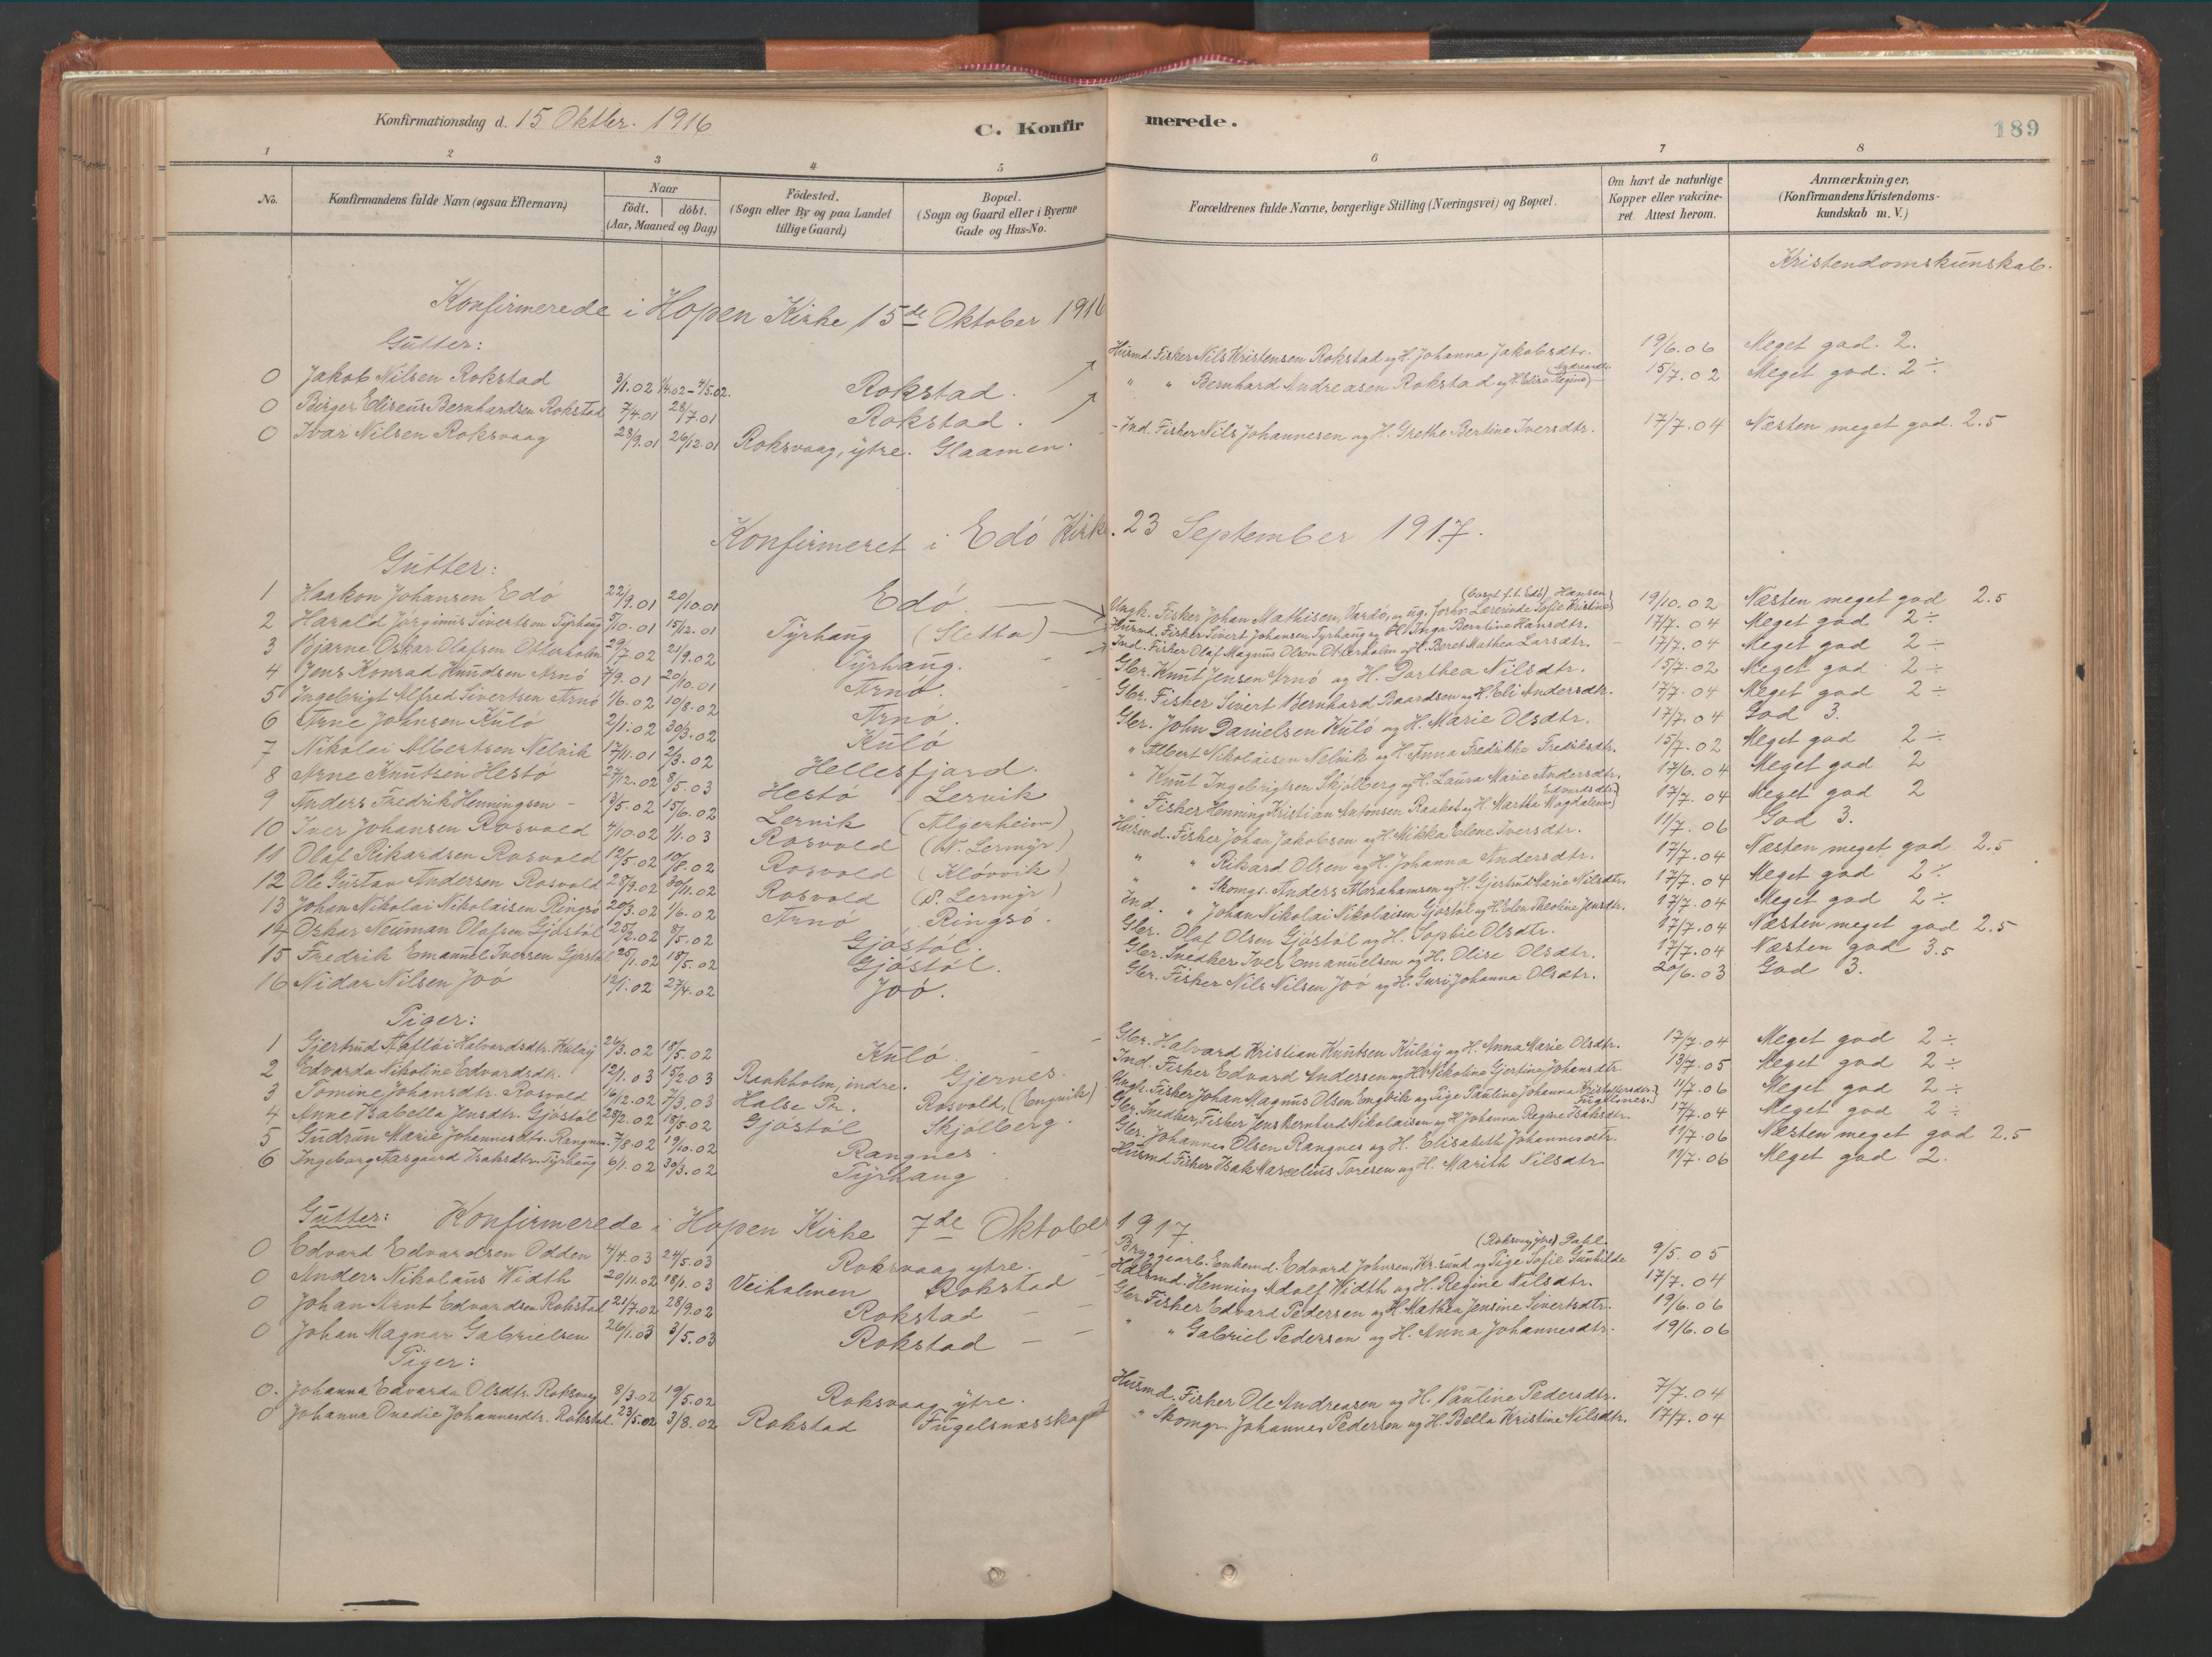 Konfirmationsdag d. 15 Oktbr. 1916
C. Konfirmerede.
189
1 2 3 4 5 6 7 8
No.
Konfirmandens fulde Navn (ogsaa Efternavn)
Naar
födt. | döbt.
(Aar, Maaned og Dag)
Födested.
(Sogn eller By og paa Landet
tillige Gaard)
Bopæl.
(Sogn og Gaard eller i Byerne
Gade og Hus-No.
Forældrenes fulde Navne, borgerlige Stilling (Næringsvei) og Bopæl.
Om havt de naturlige
Kopper eller vakcine-
ret. Attest herom.
Anmærkninger,
(Konfirmandens Kristendoms-
kundskab m. V.)
Kristendomskunskab.
Konfirmerede i Hopen Kirke 15de Oktober 1916
Gutter:
0 Jakob Nilsen Rokstad 3/1.02 1/4.02-4/5.02. Rokstad. Husmd. Fisker Nils Kristensen Rokstad og H. Johanna Jakobsdtr. 19/6.06 Meget god. 2.
0 Birger Eliseus Bernhardsen Rokstad 7/4.01 28/7.01 Rokstad. " " Bernhard Andreasen Rokstad og H. Elise Regine Andreasdtr. 15/7.02 Meget god. 2 ÷
0 Ivar Nilsen Roksvaag 28/9.01 26/12.01 Roksvaag, ytre. Glaamen. Ind. Fisker Nils Johannesen og H. Grethe Bertine Iversdtr. 17/7.04 Næsten meget god. 2.5
Konfirmeret i Edö Kirke. 23 September 1917.
Gutter:
1 Haakon Johansen Edö 22/9.01 20/10.01 Edö. Ungk. Fisker Johan Mathisen, Vardö, og ug. forhv. Lærerinde Sofie Kristine Hansen 19/10.02 Næsten meget god 2.5
2 Harald Jörginus Sivertsen Tyrhaug 5/10.01 15/12.01 Tyrhaug (Sletta) Husmd. Fisker Sivert Johansen Tyrhaug og H. Inga Berntine Hansdtr. 17/7.04 Meget god 2 ÷
3 Bjarne Oskar Olafsen Otterholm 29/7 02 21/9.02 Tyrhaug. Ind. Fisker Olaf Magnus Olsen Otterholm og H. Beret Mathea Larsdtr. 17/7.04 Meget god 2 ÷
4 Jens Konrad Knudsen Arnö 7/9.01 20/10.01 Arnö. Gbr. Knut Jensen Arnö og H. Dorthea Nilsdtr. 15/7.02 Meget god 2 ÷
5 Ingebrigt Alfred Sivertsen Arnö 1/6.02 10/8.02 Arnö. Gbr. Fisker Sivert Bernhard Baardsen og H. Eli Andersdtr. 17/7.04 Meget god 2 ÷
6 Arne Johnsen Kulö 2/1.02 30/3.02 Kulö Gbr. John Danielsen Kulö og H. Marie Olsdtr. 17/7.04 God 3.
7 Nikolai Albertsen Nelvik 17/11.01 2/3.02 Hellesfjord. " Albert Nikolaisen Nelvik og H. Anna Fredrikke Fredriksdtr. 15/7.02 Meget god 2 ÷
8 Arne Knutsen Hestö 27/12.02 8/5.03 Hestö Lervik " Knut Ingebrigtsen Skjölberg og H. Laura Marie Andersdtr. 17/6.04 Meget god 2
9 Anders Fredrik Henningsen - 13/5.02 15/6.02 Lervik (Algerheim) " Fisker Henning Kristian Antonsen Raaket og H. Martha Magdalene Edvardsdtr. 17/7.04 Meget god 2
10 Iver Johansen Rosvold 4/10.02 1/1.03 Rosvold (N. Lermyr) Husmd. Fisker Johan Jakobsen og H. Mikka Elene Iversdtr. 11/7.06 God 3.
11 Olaf Rikardsen Rosvold 19/5.02 10/8.02 Rosvold (Klövvik) " " Rikard Olsen og H. Johanna Andersdtr. 17/7.04 Næsten meget god 2.5
12 Ole Gustav Andersen Rosvold 28/9.02 30/11.02 Rosvold (S. Lermyr) " " Skomgr. Anders Abrahamsen og H. Gjertrud Marie Nilsdtr. 17/7.04 Meget god 2 ÷
13 Johan Nikolai Nikolaisen Ringsö 20/3.02 1/6.02 Arnö Ringsö. Ind. " Johan Nikolai Nikolaisen Gjöstöl og H. Elen Theoline Jensdtr. 17/7.04 Meget god 2 ÷
14 Oskar Neuman Olafsen Gjöstöl 25/2.02 8/5.02 Gjöstöl. Gbr. Olaf Olsen Gjöstöl og H. Sophie Olsdtr. 17/7.04 Næsten meget god 2.5
15 Fredrik Emanuel Iversen Gjöstöl 25/1.02 18/5.02 Gjöstöl. Gbr. Snedker Iver Emanuelsen og H. Olise Olsdtr. 17/7.04 Næsten god 3.5
16 Nidar Nilsen Joö 12/1.02 27/4.02 Joö. Gbr. Fisker Nils Nilsen Joö og H. Guri Johanna Olsdtr. 20/6.03 God 3.
Piger:
1 Gjertrud Halvardsdtr. Kulöy 24/3.02 18/5.02 Kulö. Gbr. Halvard Kristian Knutsen Kulöy og H. Anna Marie Olsdtr. 17/7.04 Meget god 2 ÷
2 Edvarda Nikoline Edvardsdtr. 12/1.03 15/2.03 Raakholm, indre. Gjernes. Ind. Fisker Edvard Andersen og H. Nikoline Gjertine Johansdtr. 13/7.05 Meget god 2 ÷
3 Tomine Johansdtr. Rosvold 16/12.02 7/3.03 Halse Pr. Rosvold, (Engvik) Ungk. Fisker Johan Magnus Olsen Engvik og Pige Pauline Johanna Kristoffersdtr. Fugelsnes. 11/7.06 Meget god 2 ÷
4 Anne Isabella Jensdtr. Gjöstöl 28/2.02 18/5.02 Gjöstöl Skjölberg. Gbr. Snedker, Fisker Jens Bernhard Nikolaisen og H. Johanna Regine Isaksdtr. 17/7.04 Meget god 2 ÷
5 Gudrun Marie Johannesdtr. Rangnes. 7/8.02 19/10.02 Rangnes. Gbr. Johannes Olsen Rangnes og H. Elisabeth Johannesdtr. 11/7.06 Næsten meget god 2.5
6 Ingeborg Aasgaard Isaksdtr. Tyrhaug 6/1.02 30/3.02 Tyrhaug Husmd. Fisker Isak Marselius Toresen og H. Marith Nilsdtr 11/7.06 Meget god 2.
Gutter: Konfirmerede i Hopen Kirke 7de Oktober 1917.
0 Edvard Edvardsen Odden 4/4.03 24/5.03 Roksvaag ytre. Bryggearb. Enkemd. Edvard Johnsen, Kr.sund og Pige Sofie Gunhilde (Roksvaag ytre) Dahl. 9/5.05
0 Anders Nikolaus Width 29/11.02 18/1.03 Veiholmen Rokstad Husmd. Henning Adolf Width og H. Regine Nilsdtr. 17/7.04
0 Johan Arnt Edvardsen Rokstad 21/7.02 28/9.02 Rokstad Gbr. Fisker Edvard Pedersen og H. Mathea Jensine Sivertsdtr. 19/6.06
0 Johan Magnar Gabrielsen 26/1.03 3/5.03 Rokstad " " Gabriel Pedersen og H. Anna Johannesdtr. 19/6.06
Piger:
0. Johanna Edvarda Olsdtr. Roksvaag 8/3.02 19/5.02 Roksvaag ytre. Husmd. Fisker Ole Andreasen og H. Pauline Pedersdtr. 7/7.04
0 Johanna Onedie Johannesdtr. Rokstad. 23/5.02 3/8.02 Rokstad Fugelsnesskaget " Skomgr. Johannes Pedersen og H. Bella Kristine Nilsdtr. 17/7.04